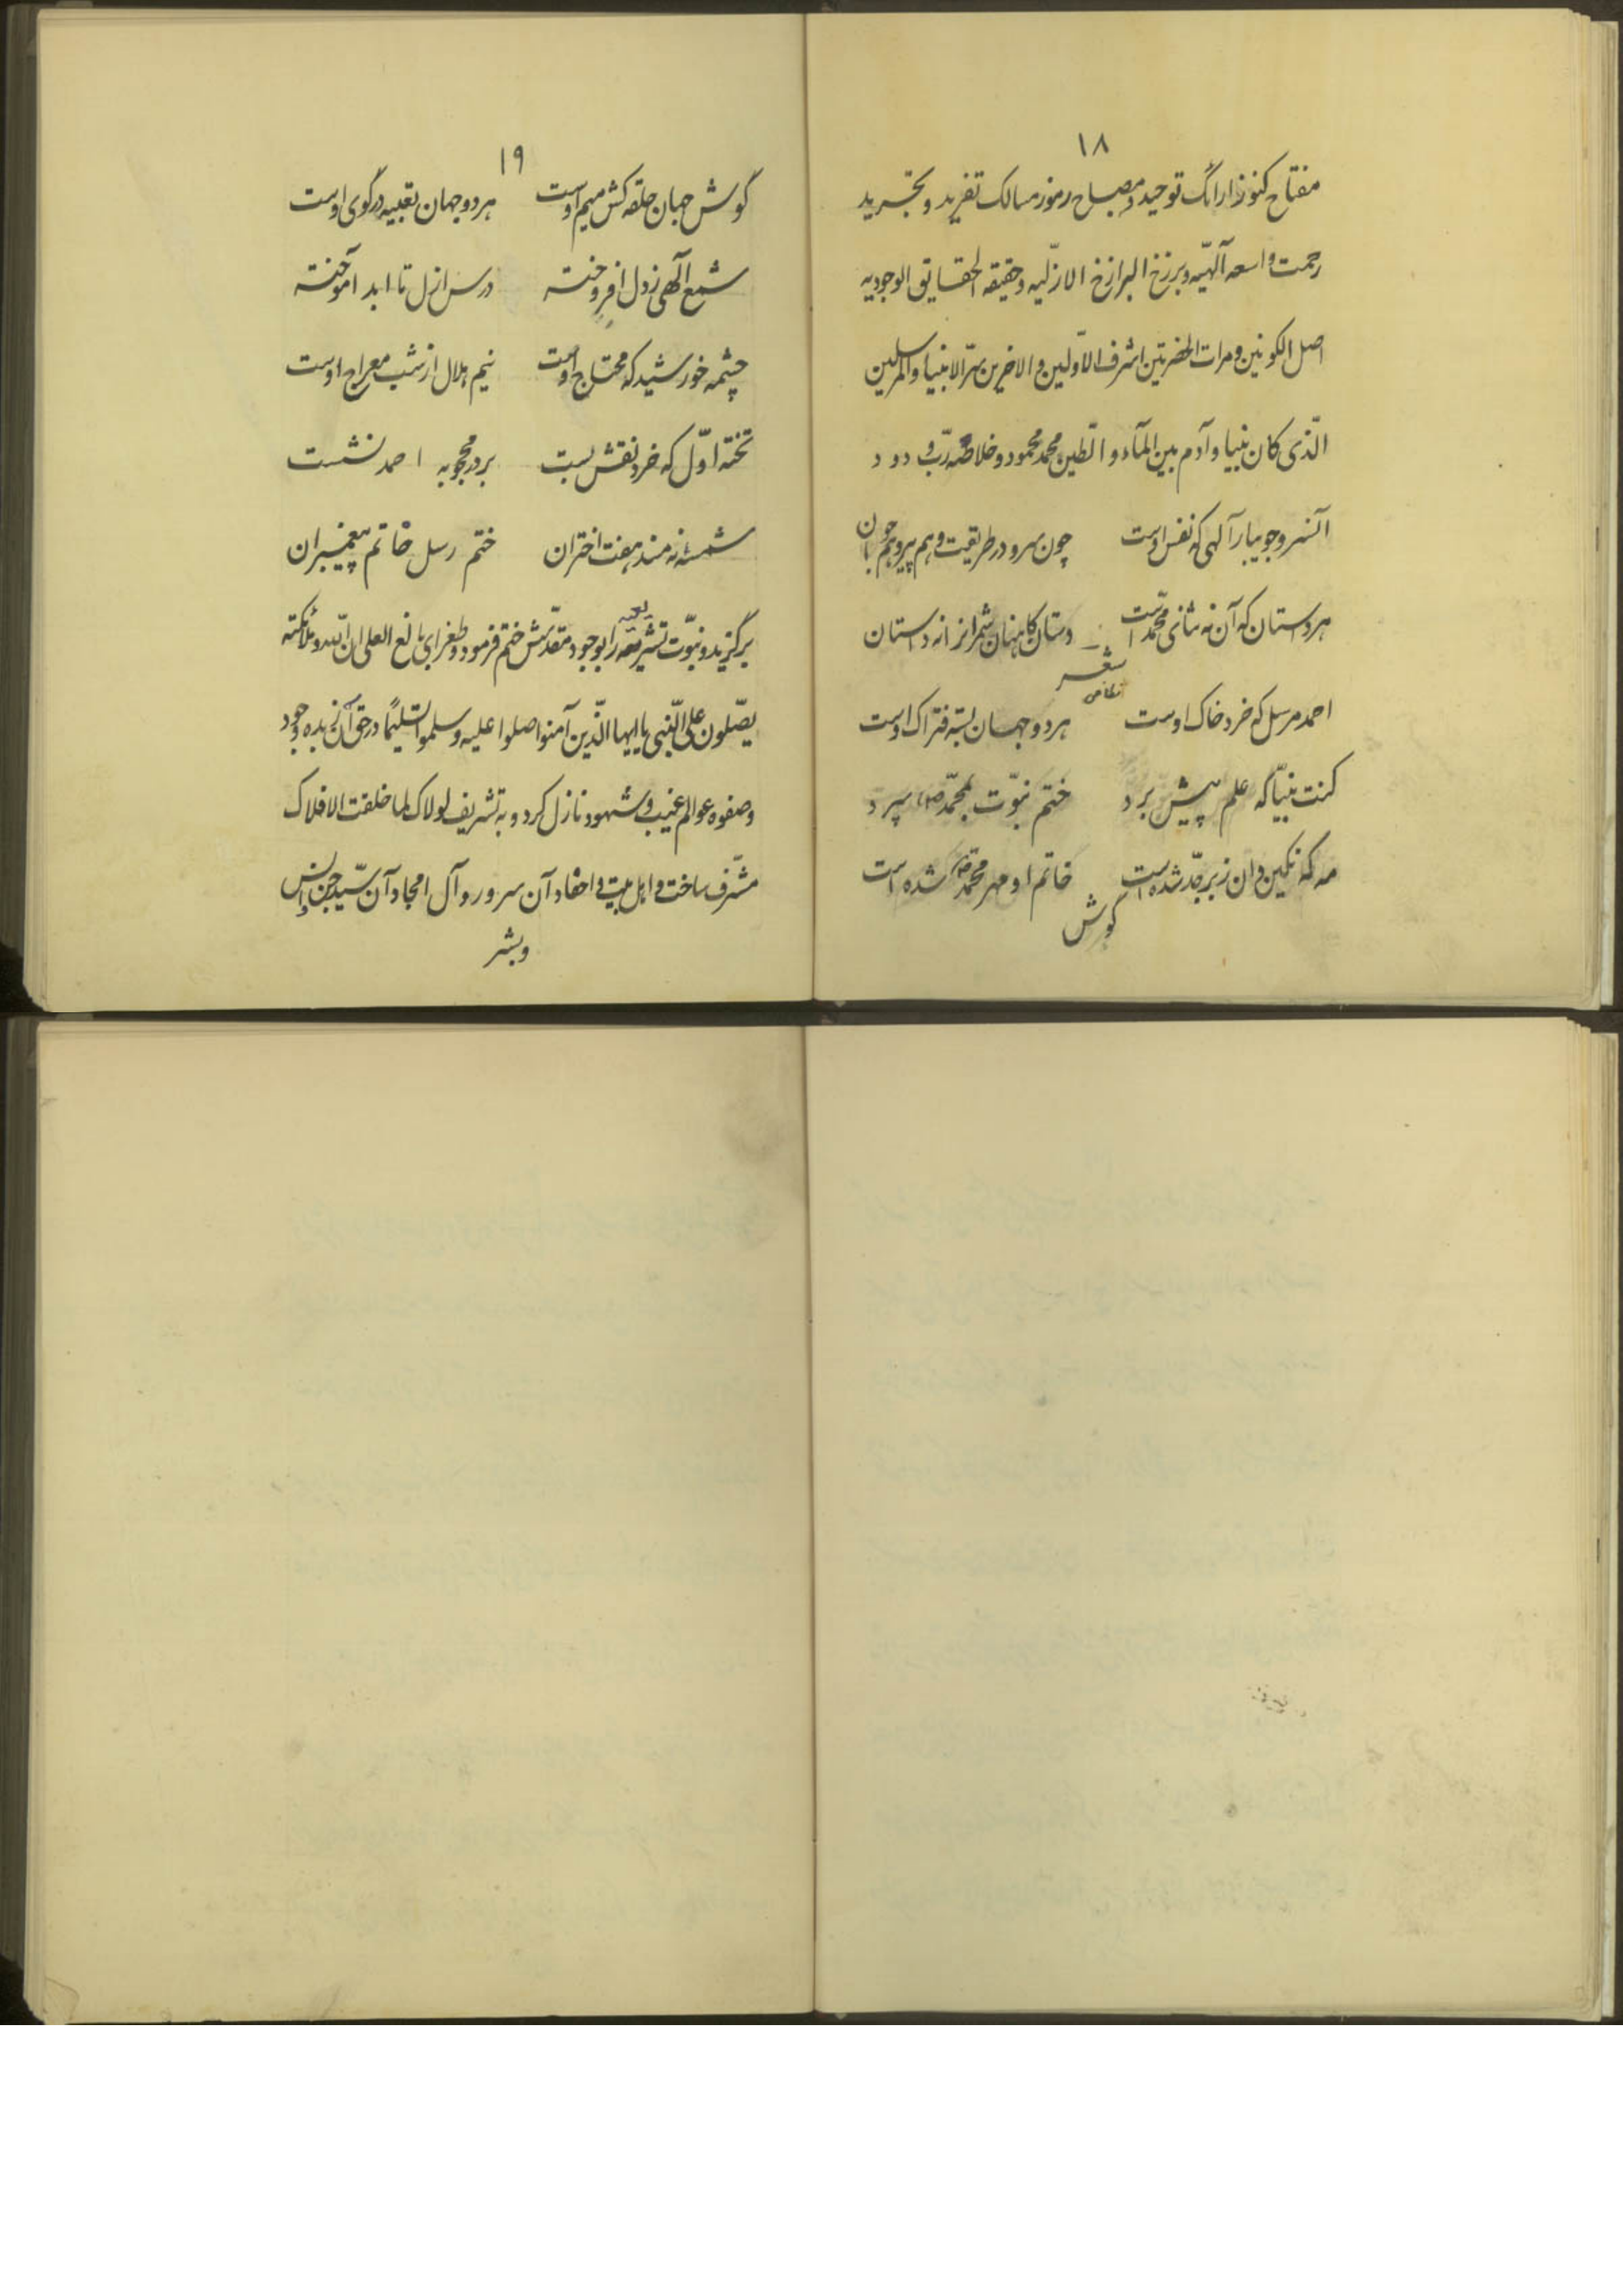 ۱۸
مفتاح کنوز ارائک توحید و مصباح رموز مسالک تفرید و تجرید
رحمت واسعه آلهیّه و برزخ البرازخ الازلّیه و حقیقه الحقایق الوجودیه
اصل الکونین و مرات الحضرتین اشرف الاوّلین و الاخرین سرّ الانبیا و المرسلین
الّذی کان نبیا و آدم بین المآء و الطّین محمد محمود و خلاصه ربّ ودود
آنسرو جویبار آلهی که نفس اوست چون سرو در طریقت و هم پیر و هم جوان
هر داستان که آن نه ثنای محمّد است دستان کاهنان شمر انرا نه داستان
شعر
نظامی
احمد مرسل که خرد خاک اوست هر دو جهان بسته فتراک اوست
کنت نبیّا که علم پیش برد ختم نبوّت بمحمّد (ص) سپرد
مه که نگین دان زبرجّد شده است خاتم او مهر محمّد ص شده است
گوش
۱۹
گوش جهان حلقه کش میم اوست هر دو جهان تعبیه در گوی اوست
شمع آلهی ز دل افروخته درس ازل تا ابد آموخته
چشمه خورشید که محتاج اوست نیم هلال از شب معراج اوست
تخته اوّل که خرد نقش بست بر در محجوبه احمد نشست
شمسه نه مسند هفت اختران ختم رسل خاتم پیغمبران
برگزید و نبوّت تشریعیه را بوجود مقدّسش ختم فرمود و طغرای بالغ العلی ان اللّه و ملائکته
یصّلون علی النّبی یا ایها الّذین آمنوا صلوا علیه و سلموا تسلیمًا در حق آن زبده وجود
و صفوه عوالم غیب و شهود نازل کرد و به تشریف لولاک لما خلقت الافلاک
مشرّف ساخت و اهل بیت و احفاد آن سرور و آل امجاد آن سیّد جن و انس
و بشر